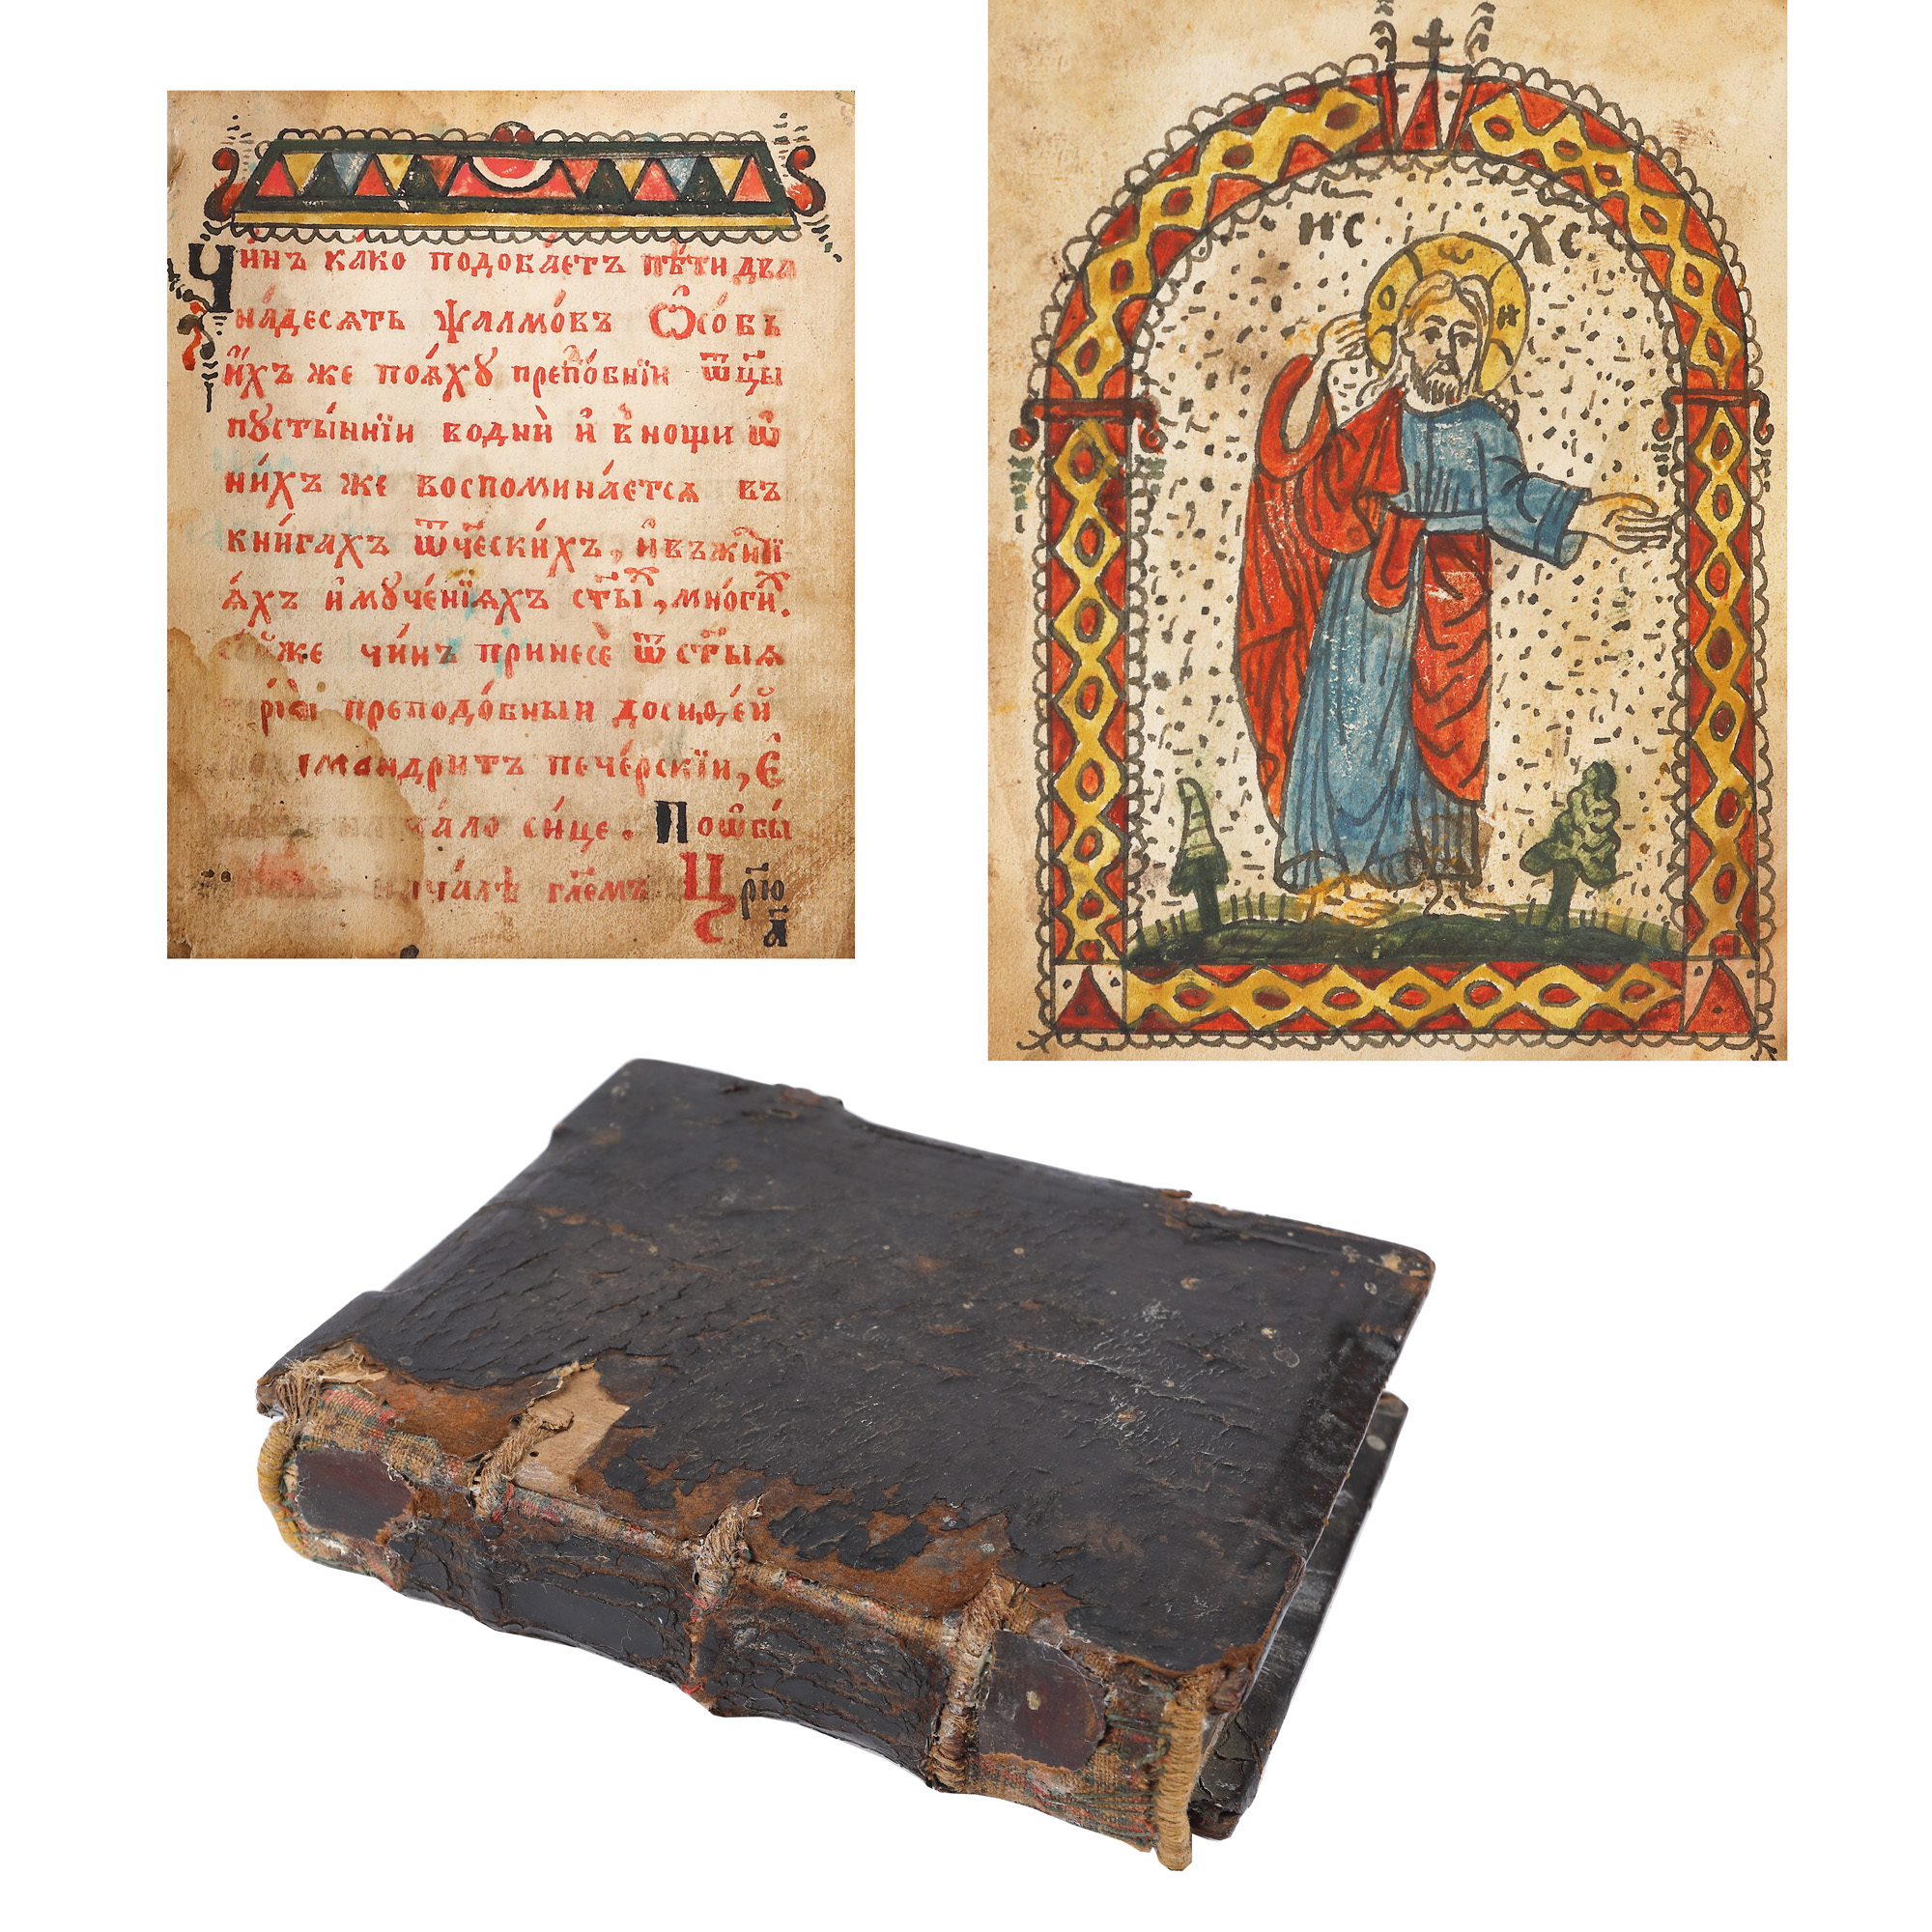 Чи́нъ како подоба́етъ пѣ́ти два
на́десѧть ѱалмо́въ Ѡ҆со́бь
и҆́хъ же поѧ́хꙋ препо́бнїи ѿц҃ы
пꙋсты́ннїи во дни̇ и҆ в нощи ѿ
ни́хъ же воспомина́етсѧ въ
кни́гахъ ѿче́ски́хъ, и҆ въ жи́тїи
ѧ́хъ и҆ мꙋче́нїѧхъ ст҃ы́, мно́ги.
же чи́нъ принесѐ ѿ ст҃ыѧ
преподо́бныи досиѳ́еи
имандри́тъ пече́рскїи, Є҆
нача́ло си́це. По ѡ҆бы́
нача́лѣ гл҃емъ Цр҃ю
ИС ХС